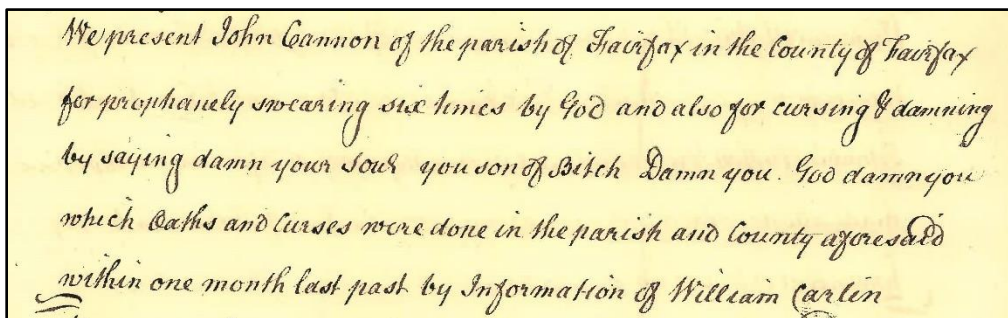 We present John Cannon of the parish of Fairfax in the County of Fairfax
for prophanely swearing six times by God and also for cursing & damning
by saying damn your Soul you son of Bitch Damn you. God damn you
which Oaths and Curses were done in the parish and County aforesaid
within one month last past by Information of William Carlin